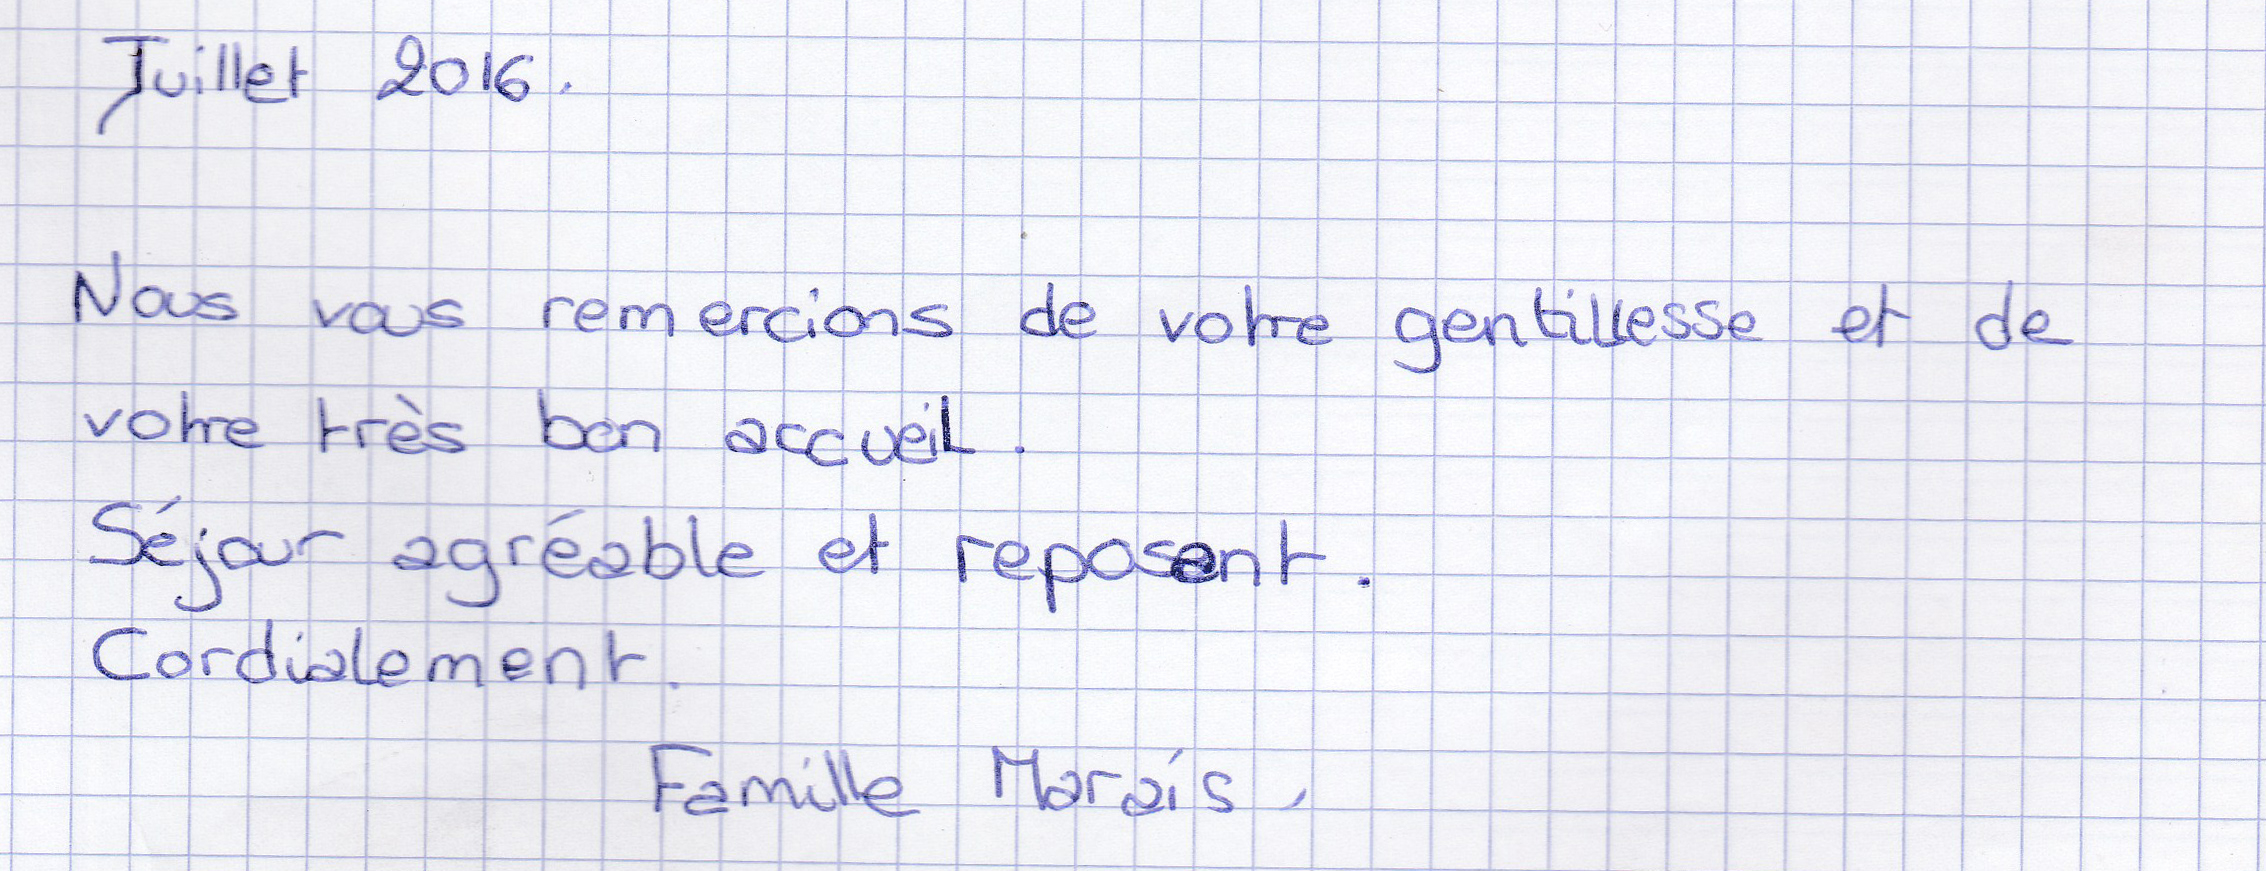 Juillet 2016.
Nous vous remercions de votre gentillesse et de
votre très bon accueil.
Séjour agréable et reposant.
Cordialement.
Famille Marais.